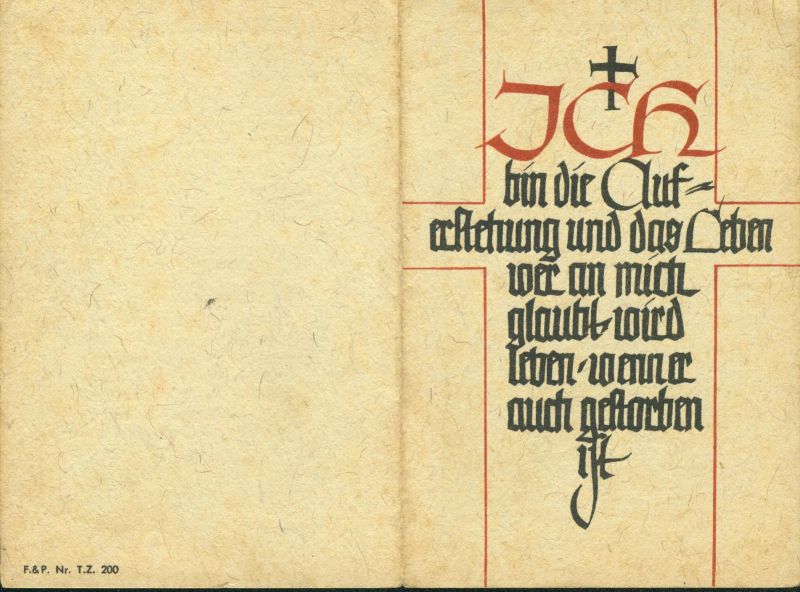 ICH
bin die Auf-
erstehung und das Leben
wer an mich
glaubt, wird
leben, wenn er
auch gestorben
ist
F.&P. Nr. T.Z. 200